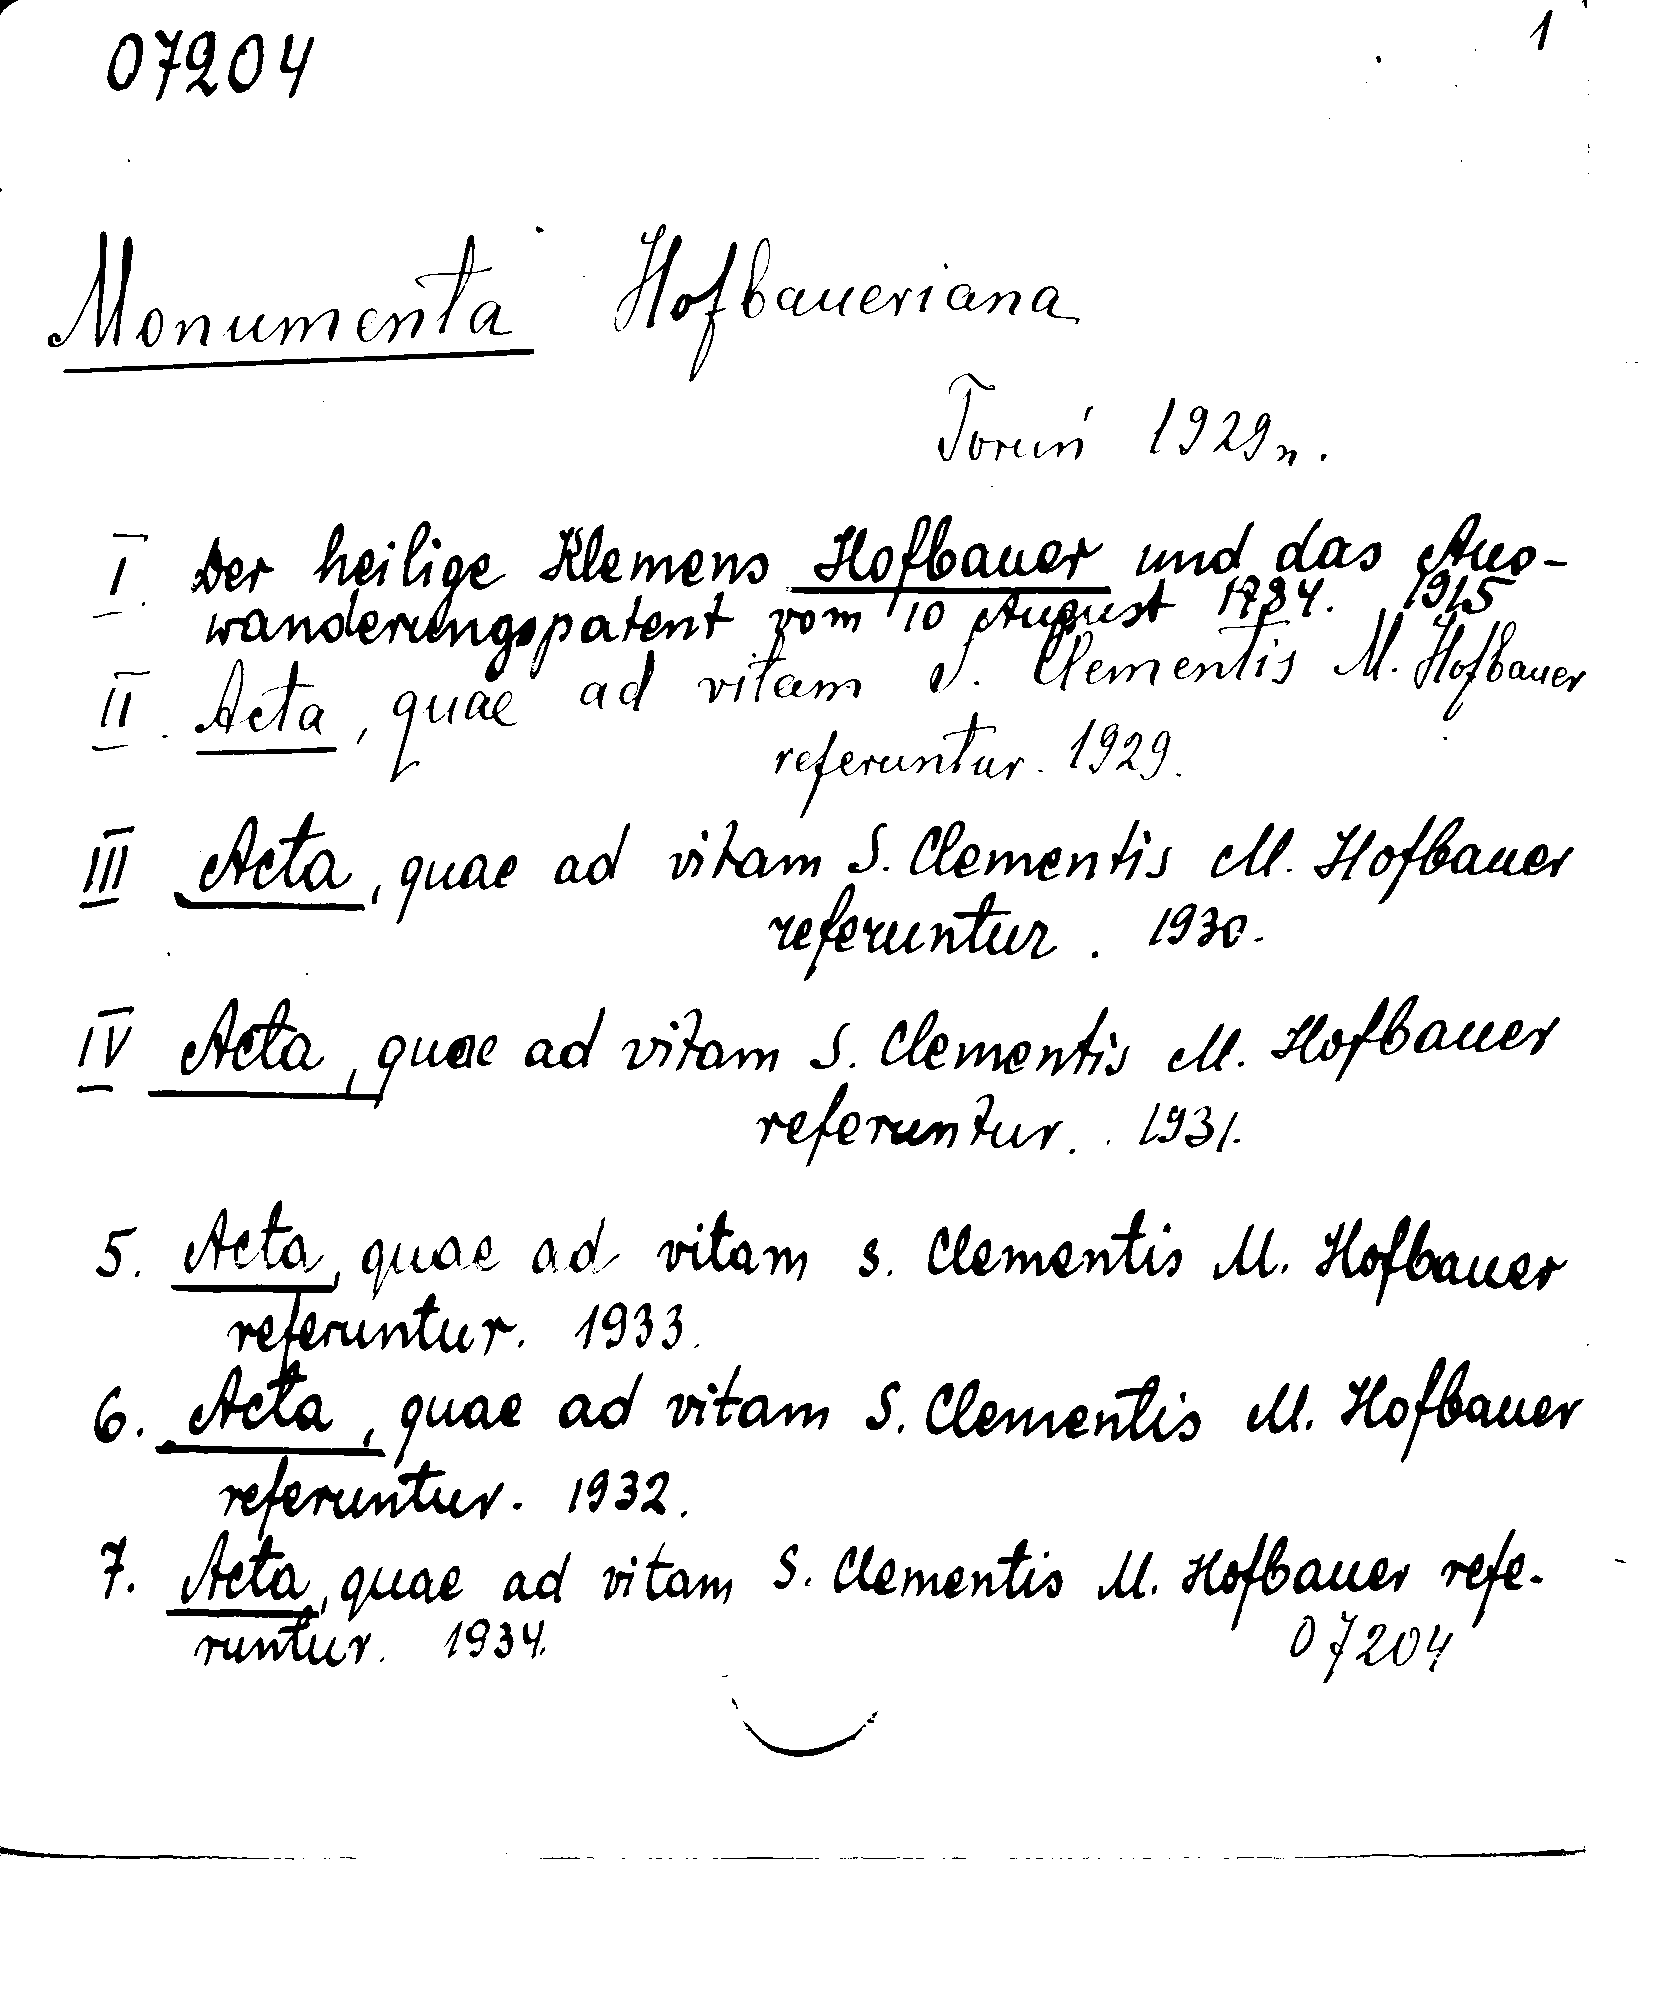 07204
1
Monumenta Hofbaueriana
Toruń 1929 r.
I. Der heilige Klemens Hofbauer und das Aus-
wanderungspatent vom 10 August 1784. 1915
II. Acta, quae ad vitam S. Clementis M. Hofbauer
referuntur. 1929.
III Acta, quae ad vitam S. Clementis M. Hofbauer
referuntur. 1930.
IV Acta, quae ad vitam S. Clementis M. Hofbauer
referuntur. 1931.
5. Acta, quae ad vitam s. Clementis M. Hofbauer
referuntur. 1933.
6. Acta, quae ad vitam S. Clementis M. Hofbauer
referuntur. 1932.
7. Acta, quae ad vitam S. Clementis M. Hofbauer refe-
runtur. 1934.
07204